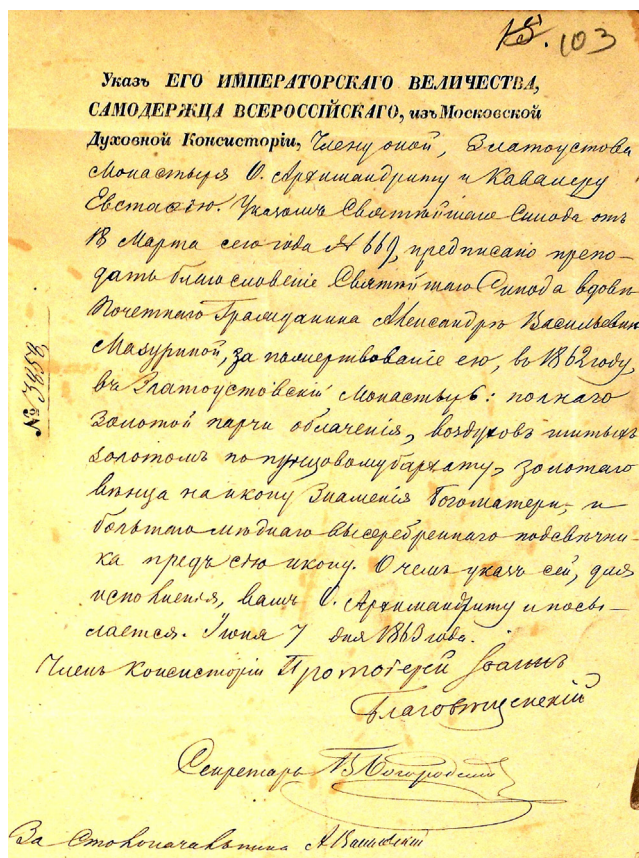 103
Указъ ЕГО ИМПЕРАТОРСКАГО ВЕЛИЧЕСТВА,
САМОДЕРЖЦА ВСЕРОССІЙСКАГО, изъ Московской
Духовной Консисторіи, Члену оной, Златоустова
Монастыря О. Архимандриту и Кавалеру
Евстафію. Указомъ Святѣйшаго Синода отъ
18 Марта сего года № 667, предписано препо-
дать благословеніе Святѣйшаго Синода вдовѣ
Почетнаго Гражданина Александрѣ Васильевнѣ
Мазуриной, за пожертвованіе ею, въ 1862 году,
въ Златоустовскій Монастырь: полнаго
золотой парчи облаченія, воздуховъ шитыхъ
золотомъ по пунцовому бархату, золотаго
вѣнца на икону Знаменія Богоматери, и
большаго мѣднаго высеребреннаго подсвѣчни-
ка предъ сію икону. О чемъ указъ сей, для
исполненія, вамъ О. Архимандриту и посы-
лается. Іюня 7 дня 1863 года.
Членъ Консисторіи Протоіерей Іоаннъ
Благовѣщенскій
Секретарь Богородскій
За Столоначальника
№ 3852